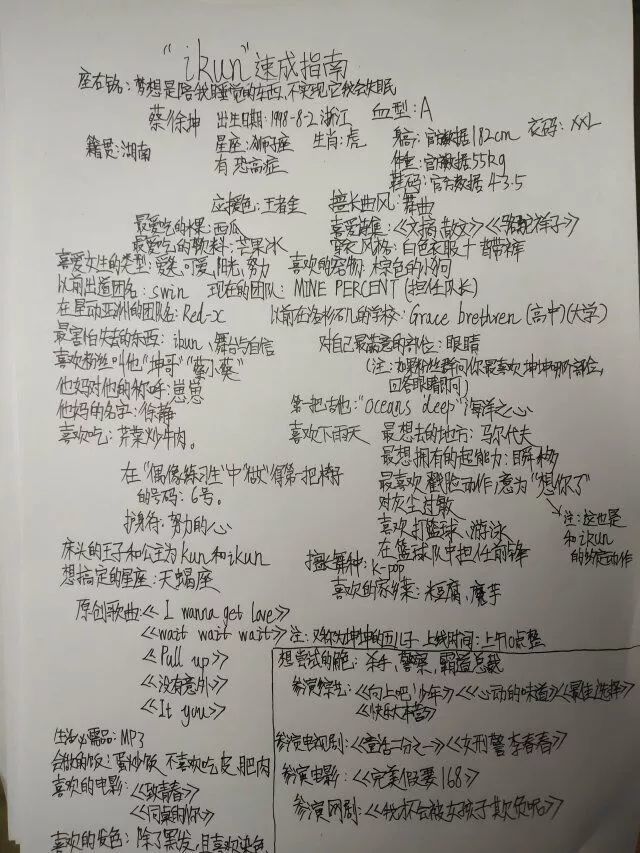 "ikun"速成指南
座右铭：梦想是陪我睡觉的东西，不实现它我会失眠
蔡徐坤 出生日期：1998-8-2 浙江 血型：A
籍贯：湖南 星座：狮子座 生肖：虎 身高：官方数据182cm 衣码：XXL
有恐高症 体重：官方数据55kg
鞋码：官方数据43.5
应援色：王者金 擅长曲风：舞曲
最爱吃的水果：西瓜 喜爱诗集：《文摘散文》《骆驼祥子》
最爱吃的饮料：芒果冰 穿衣风格：白色衣服+背带裤
喜爱女生的类型：爱笑、可爱、阳光、努力 喜欢的宠物：棕色的小狗
以前出道团名：swin 现在的团队：MINE PERCENT（担任队长）
在星动亚洲的团队名：Red-x 以前在洛杉矶的学校：Grace brethren（高中）（大学）
最害怕失去的东西：ikun、舞台与自信 对自己最满意的部位：眼睛
喜欢粉丝叫他"坤哥""蔡小葵" （注：如果粉丝群问你最喜欢坤坤哪个部位，
他妈对他的称呼：崽崽 回答眼睛即可）
他妈的名字：徐静 第一把吉他："Oceans deep"海洋之心
喜欢吃：芹菜炒牛肉。 喜欢下雨天 最想去的地方：马尔代夫
最想拥有的超能力：瞬移
在"偶像练习生"中"做"得第一把椅子 最喜欢戳脸动作，意为"想你了"
的号码：6号。 对灰尘过敏
护身符：努力的心 喜欢打篮球、游泳 注：这也是
床头的王子和公主为kun和ikun 在篮球队中担任前锋 和ikun
想搞定的星座：天蝎座 擅长舞种：k-pop 的约定动作
喜欢的家乡菜：米豆腐、魔芋
原创歌曲：《I wanna get love》
《wait wait wait》注：又称为坤坤的五儿子 上线时间：上午10点整
《Pull up》 想尝试的角色：杀手、警察、霸道总裁
《没有意外》 参演综艺：《向上吧！少年》《心动的味道》《最佳选择》
《It you》 《快乐大本营》
生活必需品：MP3 参演电视剧：《童话二分之一》《女刑警李春春》
会做的饭：蛋炒饭，不喜欢吃皮、肥肉 参演电影：《完美假妻168》
喜欢的电影：《致青春》
《同桌的你》 参演网剧：《我才不会被女孩子欺负呢》
喜欢的发色：除了黑发，且喜欢染色，